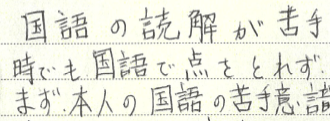 国語の読解が苦手
時でも、国語で点をとれず、
まず、本人の国語の苦手意識